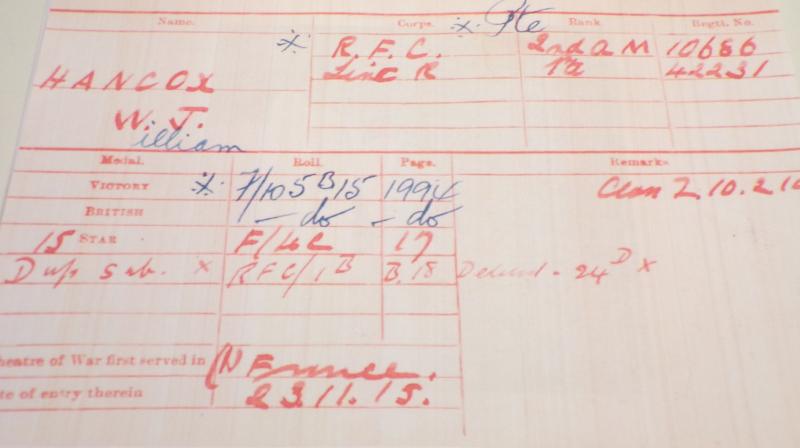 Name. Corps. Rank Regtl. No.
※ Pte
※ R. F. C. 2nd A M 10686
HANCOX Linc R Pte 42231
W. J.
illiam
Medal. Roll. Page. Remarks.
VICTORY ※ 7/105 B15 1994 Clan 2.10.2
BRITISH — do — do
15 STAR F/4C 17
Dup Sub. × RFC/1B B.18 24D ×
heatre of War first served in (1) France.
te of entry therein 23.11.15.